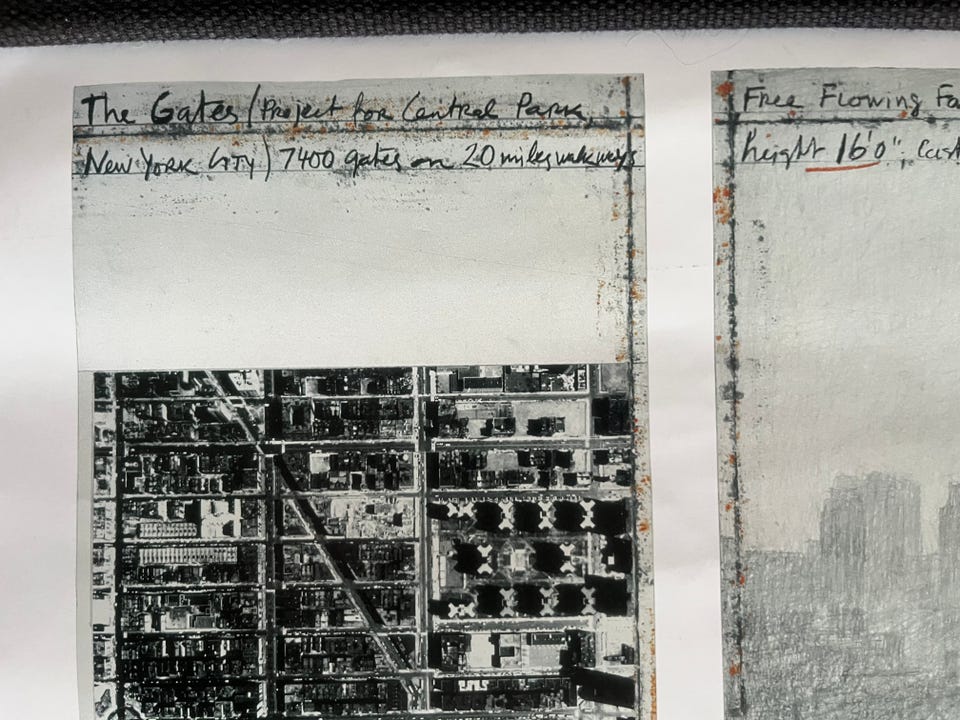 The Gates (Project for Central Park,
New York City) 7400 gates on 20 miles walkways
Free Flowing Fa
height 16'0",